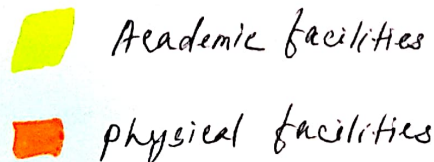 Academic facilities
physical facilities